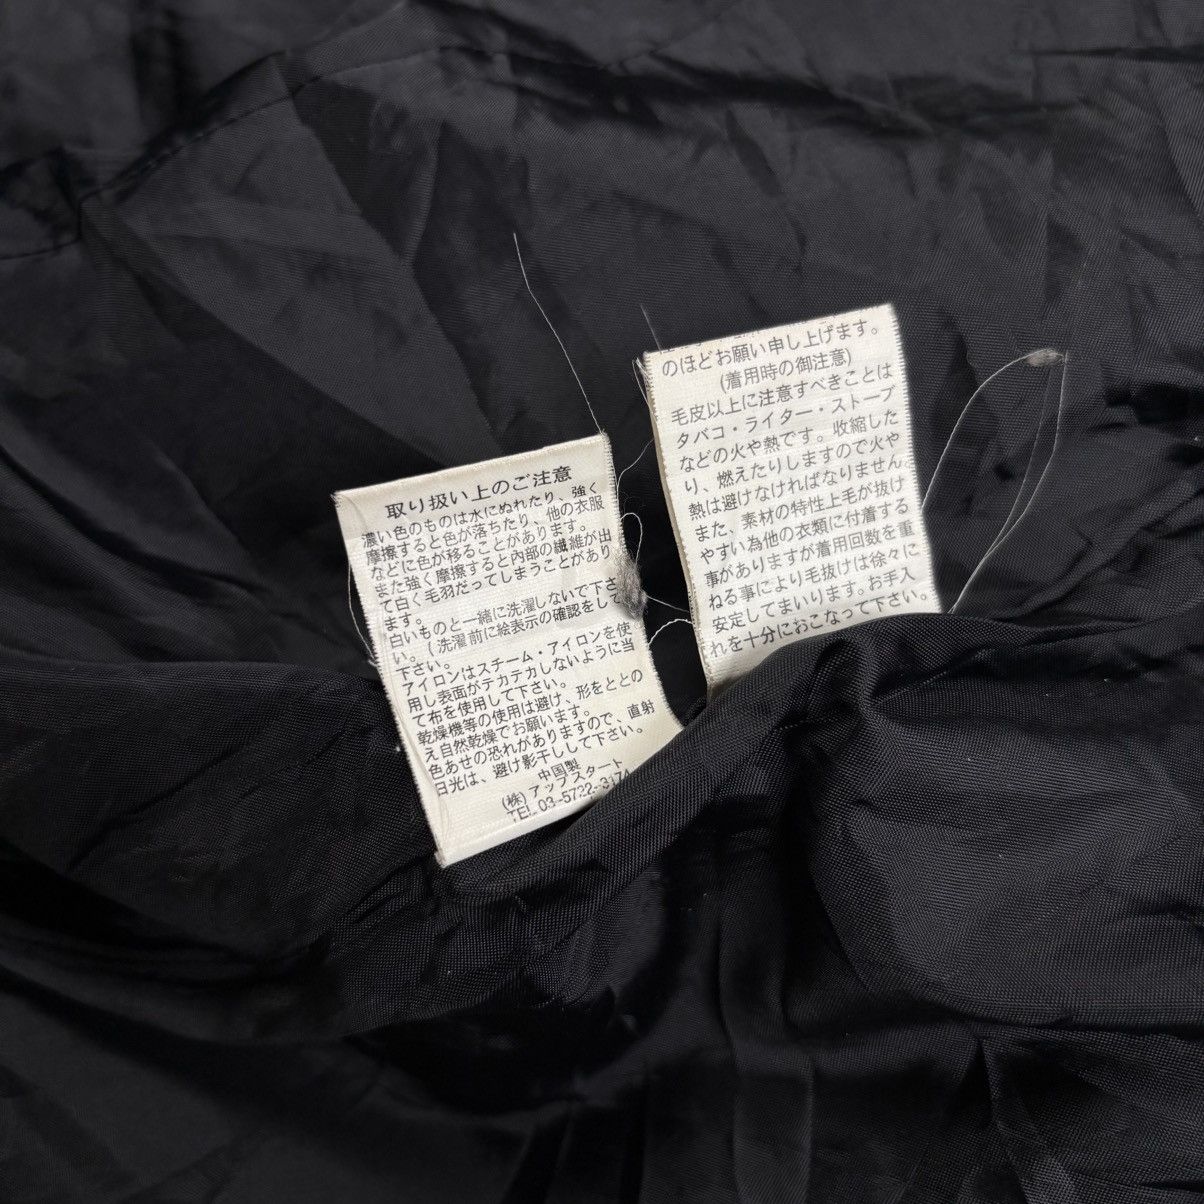 取り扱い上のご注意
濃い色のものは水にぬれたり、強く
摩擦すると色が落ちたり、他の衣服
などに色が移ることがあります。
また強く摩擦すると内部の繊維が出
て白く毛羽だってしまうことがあり
ます。
白いものと一緒に洗濯しないで下さ
い。(洗濯前に絵表示の確認をして
下さい。
アイロンはスチーム・アイロンを使
用し表面がテカテカしないように当
て布を使用して下さい。
乾燥機等の使用は避け、形をととの
え自然乾燥でお願います。
色あせの恐れがありますので、直射
日光は、避け影干しして下さい。
中国製
(株)アップスタート
TEL 03-5722-
のほどお願い申し上げます。
(着用時の御注意)
毛皮以上に注意すべきことは
タバコ・ライター・ストーブ
などの火や熱です。収縮した
り、燃えたりしますので火や
熱は避けなければなりません。
また、素材の特性上毛が抜け
やすい為他の衣類に付着する
事がありますが着用回数を重
ねる事により毛抜けは徐々に
安定してまいります。お手入
れを十分におこなって下さい。